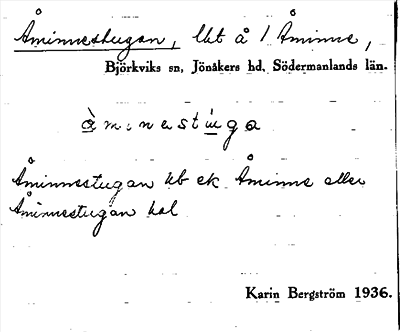 Åminnestugan, lht å 1 Åminne,
Björkviks sn, Jönåkers hd, Södermanlands län.
åminestuga
Åminnestugan hb ek Åminne eller
Åminnestugan kal
Karin Bergström 1936.